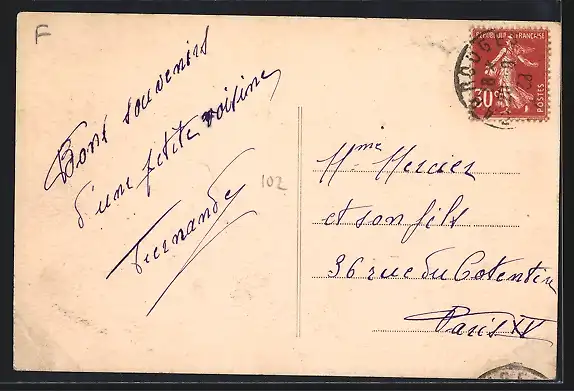 F
Bons souvenirs
d'une petite voisine
Fernande
102
REPUBLIQUE FRANÇAISE
30c
POSTES
Mme Mercier
et son fils
36 rue du Cotentin
Paris XV